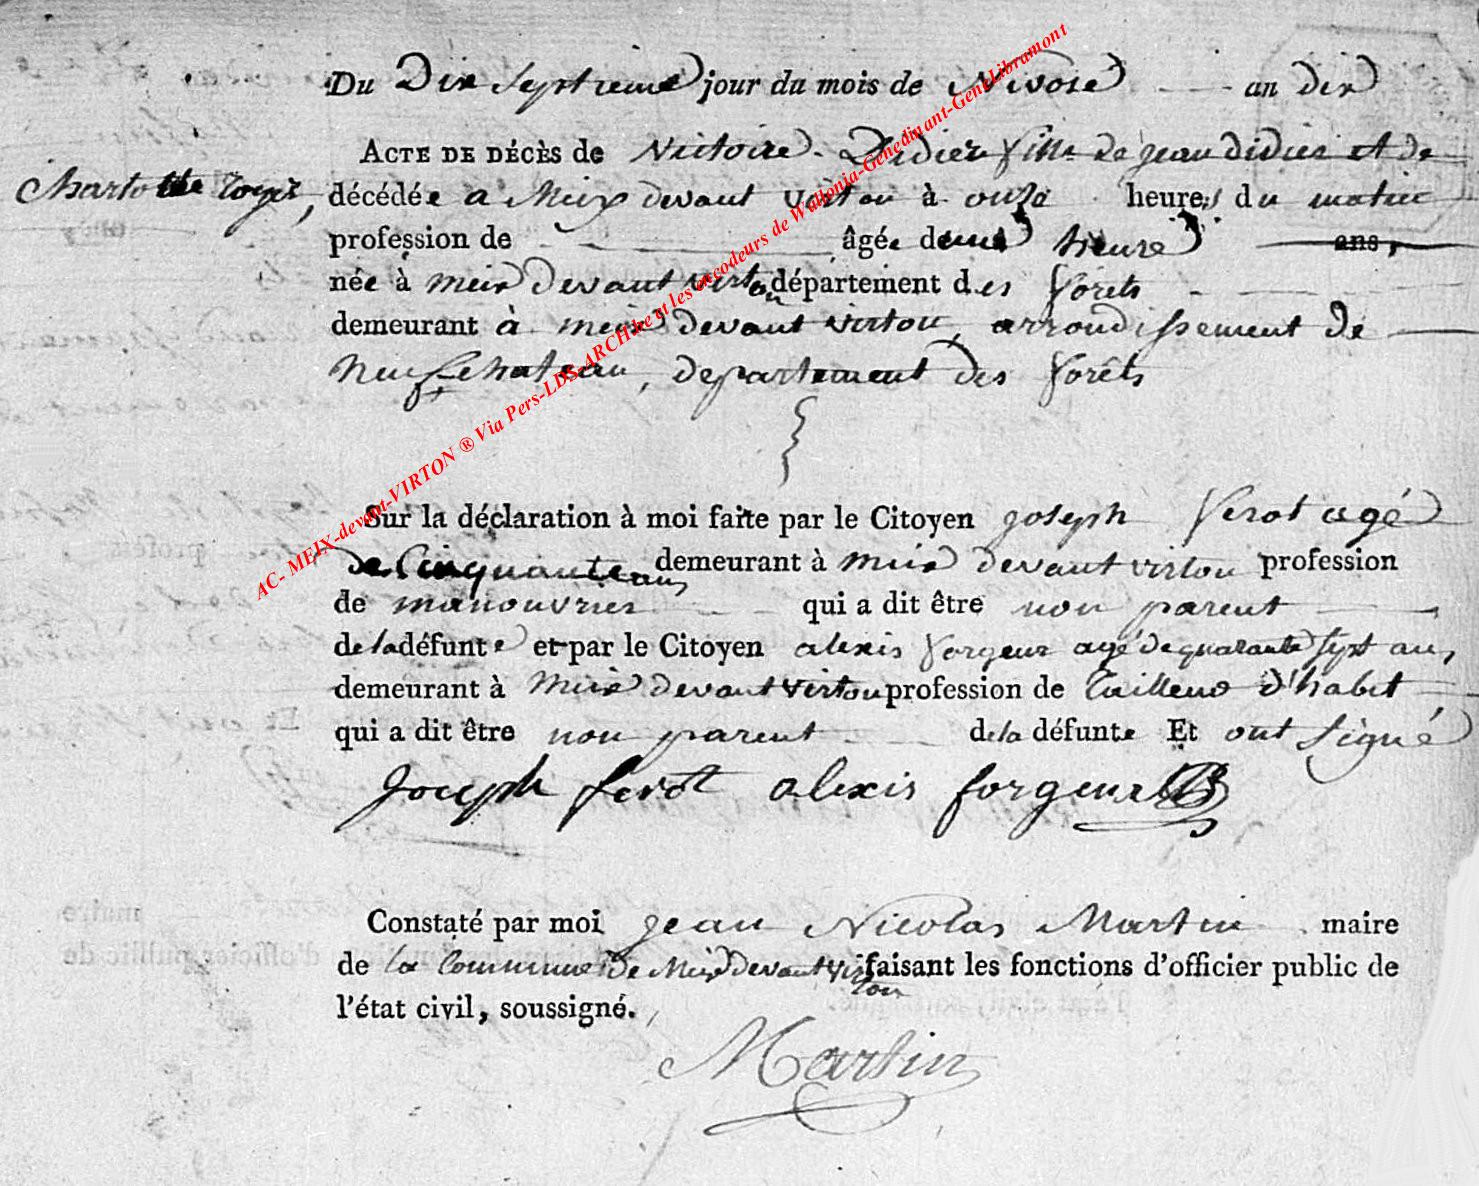 Du Dix Septieme jour du mois de Nivose an dix
ACTE DE DÉCÈS de Victoire Didier fille de jean didier et de
Charlotte loyer,
décédée a Meix devant virton à onze heures du matin
profession de âgée dune heure ans,
née à meix devant virton département des forêts
demeurant à meix devant virton, arrondissement de
Neufchateau, departement des forêts
Sur la déclaration à moi faite par le Citoyen joseph ferot agé
de Cinquante ans demeurant à meix devant virton profession
de manouvrier qui a dit être non parent
de la défunte et par le Citoyen alexis forgeur agé de quarante sept ans,
demeurant à Meix devant virton profession de Tailleur d'habit
qui a dit être non parent de la défunte Et ont signé
Joseph ferot alexis forgeur
Constaté par moi jean Nicolas Martin maire
de la Commune de Meix devant virton faisant les fonctions d'officier public de
l'état civil, soussigné.
Martin
AC- MEIX-devant-VIRTON ® Via Pers-LDS-ARCH be et les encodeurs de Wallonia-Genedinant-GeneLibramont